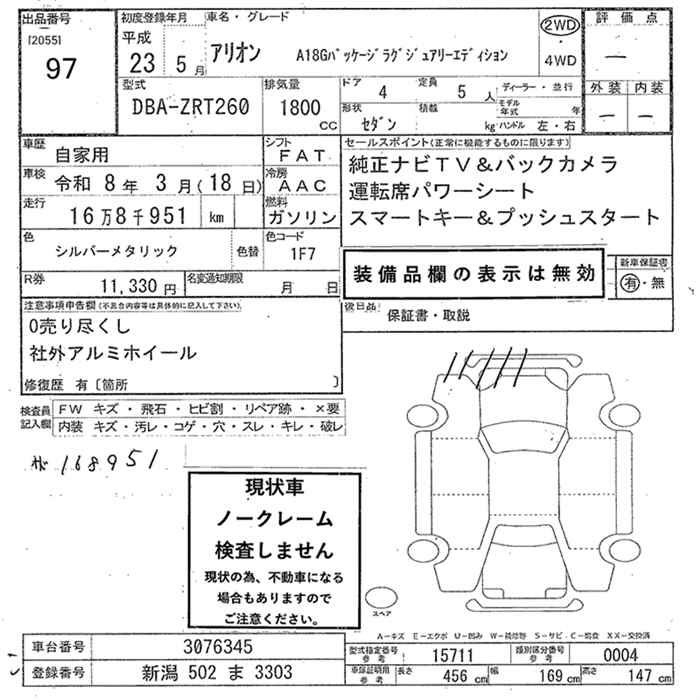 出品番号
[2055]
97
初度登録年月
平成
23 5 月
車名・グレード
アリオン A18Gパッケージラグジュアリーエディション
2WD
・
4WD
評価点
―
外装 内装
― ―
型式
DBA-ZRT260
排気量
1800
CC
ドア 4
定員 5 人
形状 セダン
積載 kg
ディーラー・並行
モデル年式 年
ハンドル 左・右
車歴 自家用
シフト FAT
車検 令和 8年 3月(18日)
冷房 AAC
走行 16万8千951 km
燃料 ガソリン
色 シルバーメタリック
色替
色コード 1F7
R券 11,330円
名変通知期限 月 日
セールスポイント(正常に機能するものに限ります)
純正ナビTV&バックカメラ
運転席パワーシート
スマートキー&プッシュスタート
装備品欄の表示は無効
新車保証書
有・無
後日品 保証書・取説
注意事項申告欄(不具合内容等は具体的に記入して下さい)
0売り尽くし
社外アルミホイール
修復歴 有〔箇所 〕
検査員記入欄
FW キズ・飛石・ヒビ割・リペア跡・×要
内装 キズ・汚レ・コゲ・穴・スレ・キレ・破レ
168951
現状車
ノークレーム
検査しません
現状の為、不動車になる
場合もありますので
ご注意ください。
スペア
A-キズ E-エクボ U-凹み W-補修跡 S-サビ C-腐食 XX-交換済
車台番号 3076345
登録番号 新潟 502 ま 3303
型式指定番号 参考 15711
類別区分番号 参考 0004
車検証記載 参考 長さ 456 cm 幅 169 cm 高さ 147 cm